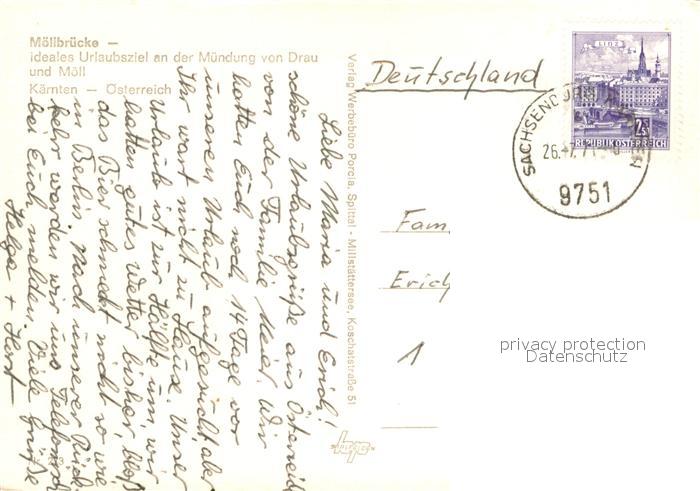 Möllbrücke —
ideales Urlaubsziel an der Mündung von Drau
und Möll
Kärnten — Österreich
Liebe Maria und Erich!
schöne Urlaubsgrüße aus Österreich
von der Familie Heidt. Wir
hatten Euch noch 14 Tage vor
unserem Urlaub aufgesucht, aber
Ihr wart nicht zu Hause. Unser
Urlaub ist zur Hälfte um, wir
hatten gutes Wetter bisher, bloß
das Bier schmeckt nicht so wie
in Berlin. Nach unserer Rück-
kehr werden wir uns telefonisch
bei Euch melden. Viele Grüße
Helga + Horst
Verlag Werbebüro Porcia, Spittal - Millstättersee, Koschatstraße 51
Deutschland
LINZ
REPUBLIK ÖSTERREICH
SACHSENBURG
26.-7.71
9751
Fam
Erich
1
privacy protection
Datenschutz